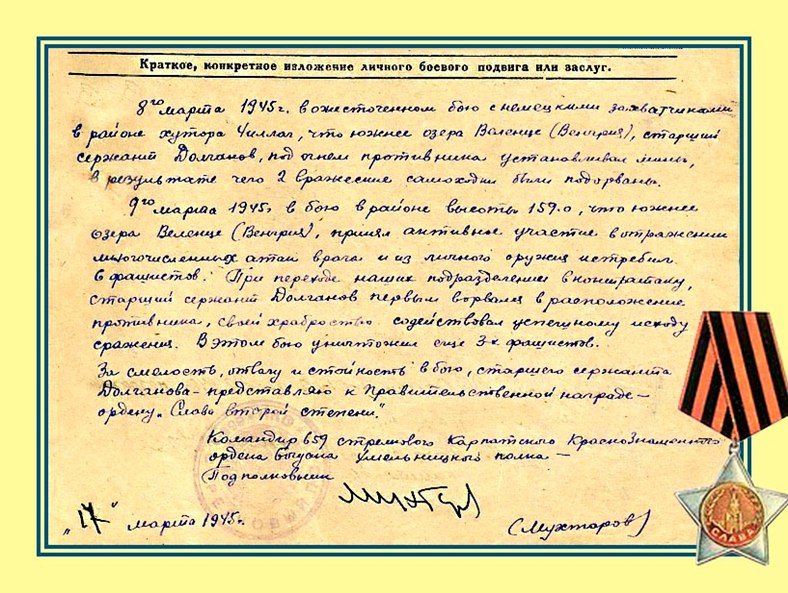 Краткое, конкретное изложение личного боевого подвига или заслуг.
8го марта 1945 г. в ожесточенном бою с немецкими захватчиками
в районе хутора Чиллаг, что южнее озера Веленце (Венгрия), старший
сержант Долганов, под огнем противника установливал мины,
в результате чего 2 вражеские самоходки были подорваны.
9го марта 1945г в бою в районе высоты 159.0, что южнее
озера Веленце (Венгрия), принял активное участие в отражении
многочисленных атак врага и из личного оружия истребил
6 фашистов. При переходе наших подразделений в контратаку,
старший сержант Долганов первым ворвался в расположение
противника, своей храбростью содействовал успешному исходу
сражения. В этом бою уничтожил еще 3-х фашистов.
За смелость, отвагу и стойкость в бою, старшего сержанта
Долганова - представляю к Правительственной награде -
ордену „Слава второй степени".
Командир 659 стрелкового Карпатского Краснознаменного
ордена полка -
Подполковник
„17" марта 1945г. (Мухтаров)
СЛАВА